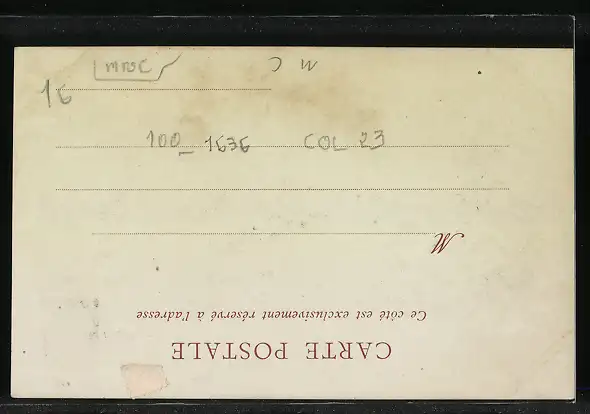 CARTE POSTALE
Ce côté est exclusivement réservé à l'adresse
M
100_ 1636 COL 23
16